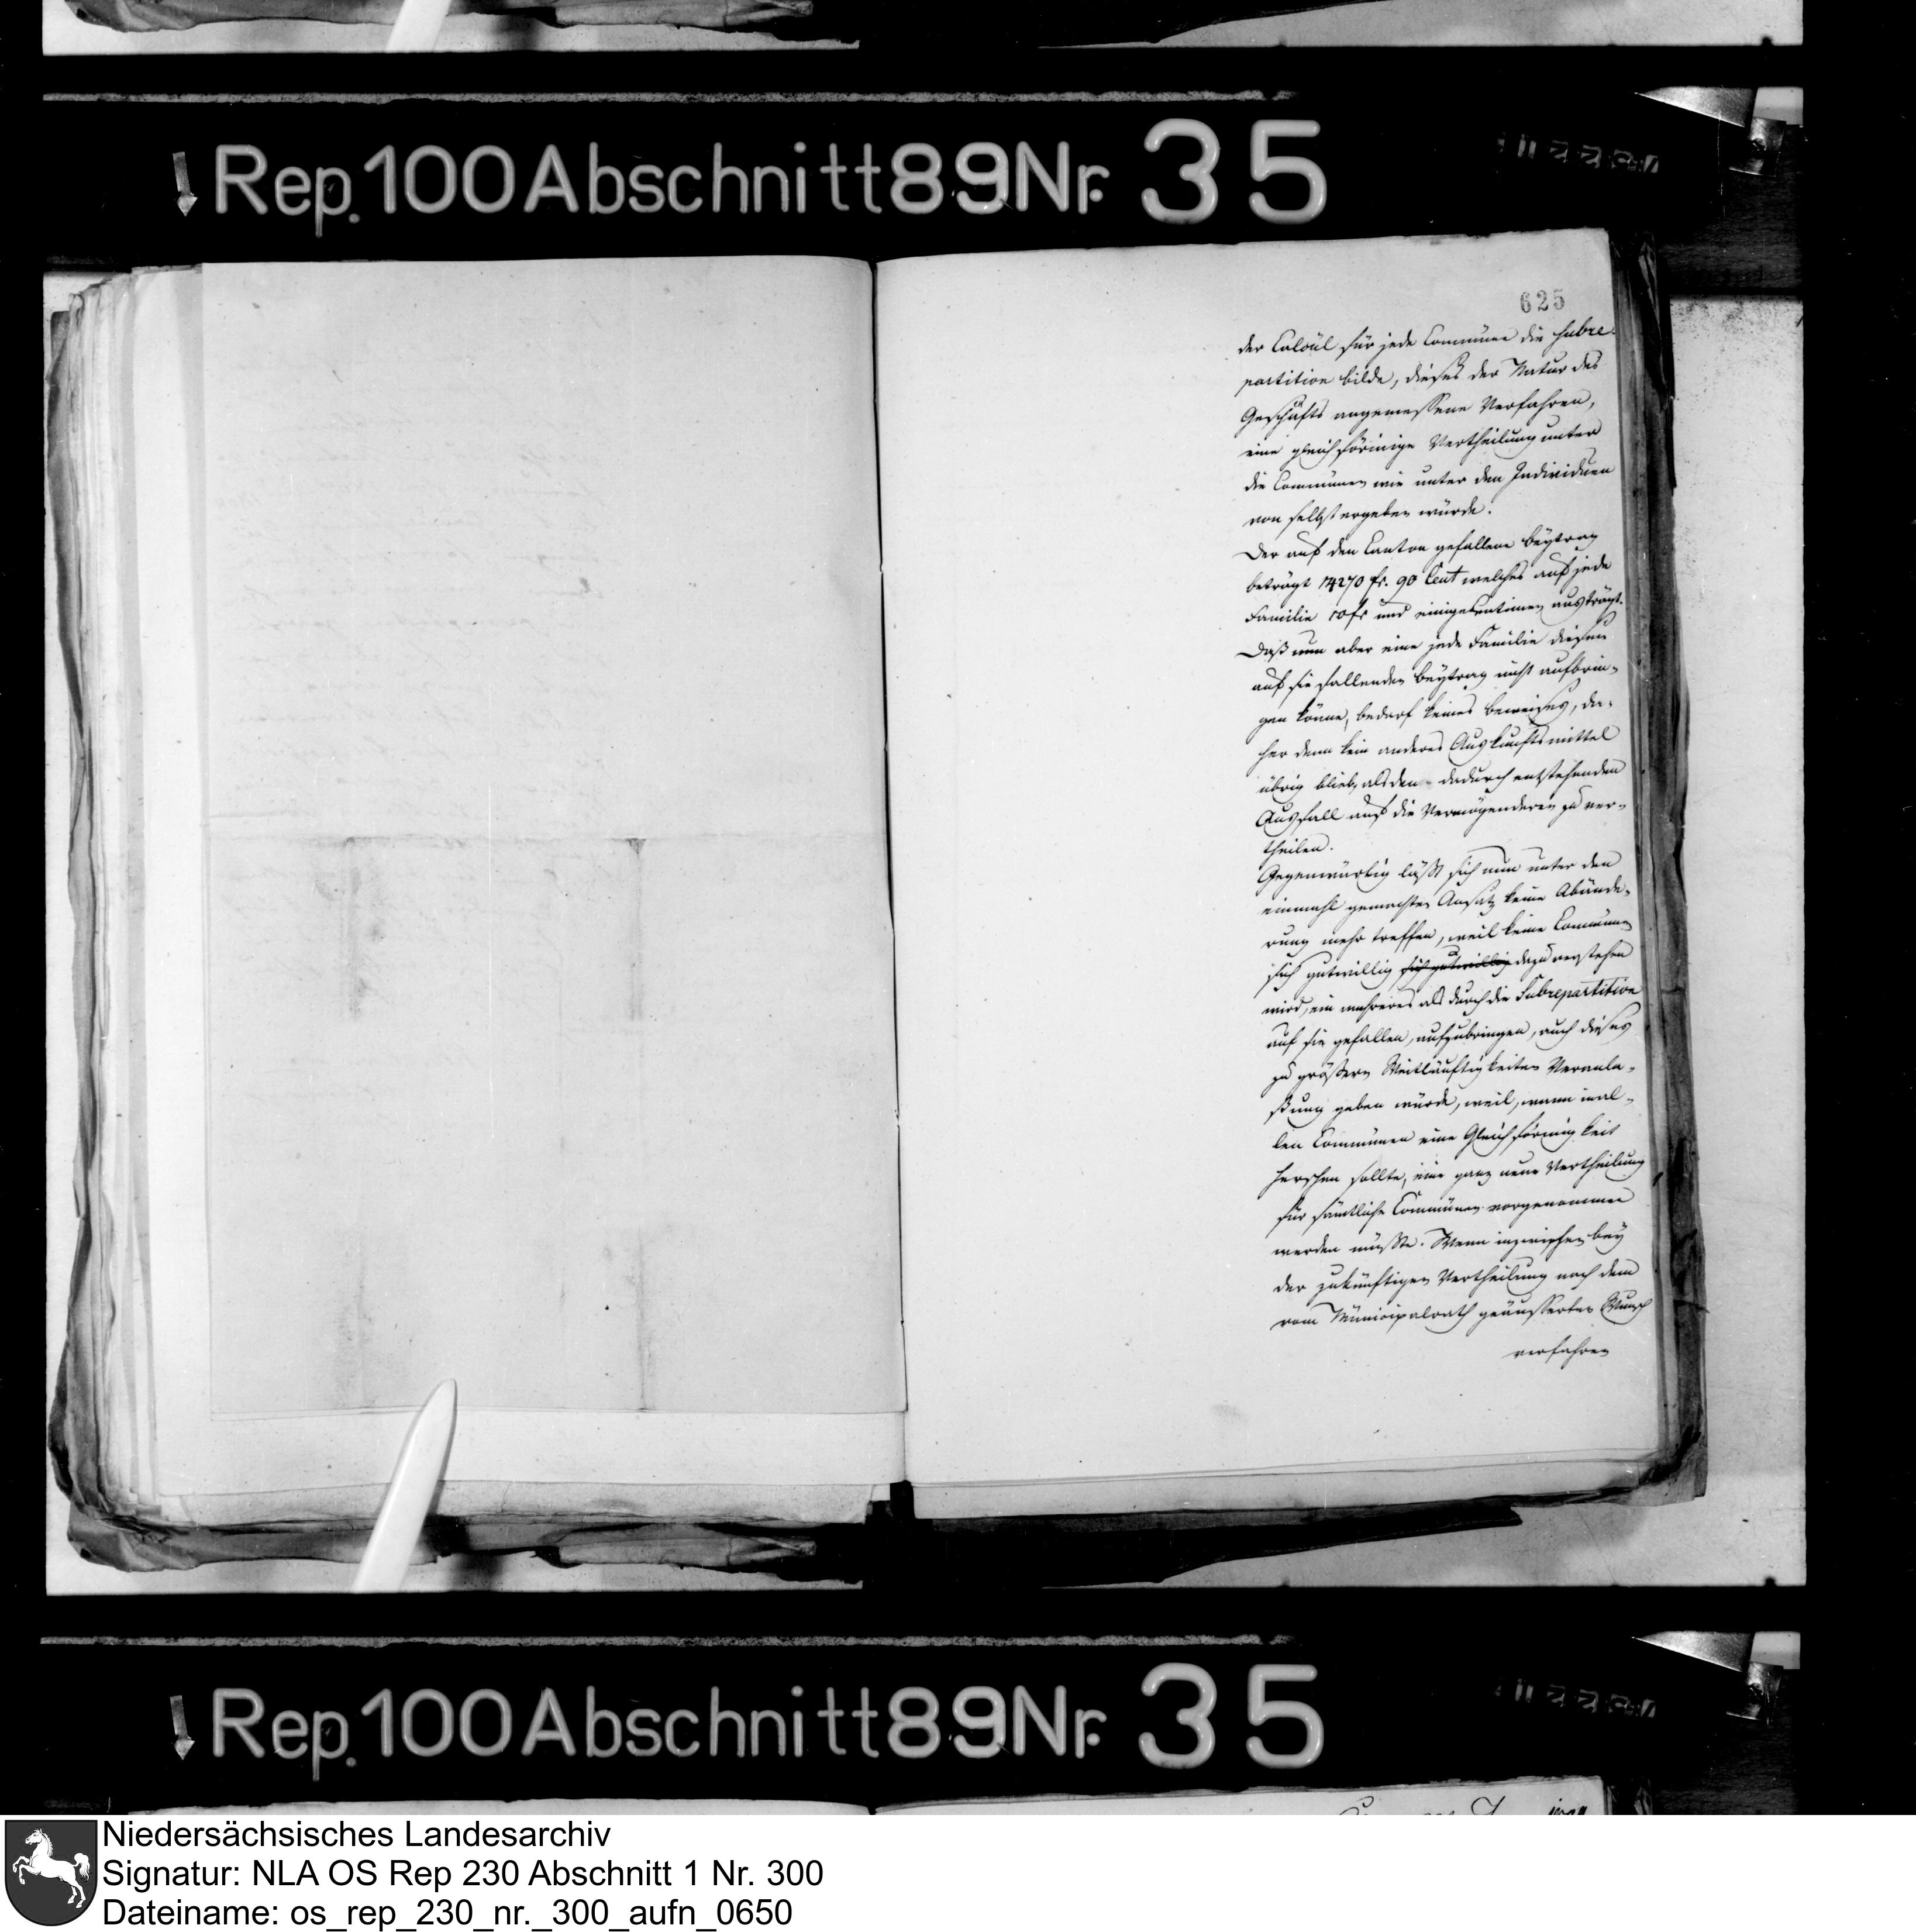 Rep. 100 Abschnitt 89 Nr. 35
625
der Calcül für jede Commüne die Subre-
partition bilde, dieses der Natur des
Geschäfts angemessene Verfahren,
eine gleichförmige Vertheilung unter
die Commünen wie unter den Individuen
von selbst ergeben würde.
Der auf den Canton gefallene Beÿtrag
beträgt 14270 fr. 90 Cent welches auf jede
Familie 10 fr und einige Centimen austrägt.
Daß nun aber eine jede Familie diesen
auf sie fallenden Beÿtrag nicht aufbrin-
gen könne, bedarf keines Beweises, da-
her denn kein anderes Auskunftsmittel
übrig blieb, als den dadurch entstehenden
Ausfall auf die Vermögenderen zu ver-
theilen.
Gegenwärtig läßt sich nun unter den
einmahl gemachten Ansatz keine Abände-
rung mehr treffen, weil keine Commüne
sich gutwillig sich gutwillig dazu verstehen
wird, ein mehreres als durch die Subrepartition
auf sie gefallen, aufzubringen, auch dieses
zu größern Weitläuftigkeiten Veranla-
ßung geben würde, weil, wenn in al-
len Commünen eine Gleichförmigkeit
herschen sollte, eine ganz neue Vertheilung
für sämtliche Commünen vorgenommen
werden müßte. Wenn inzwischen beÿ
der zukünftigen Vertheilung nach dem
vom Municipalrath geäusserten Wunsch
verfahren
Rep. 100 Abschnitt 89 Nr. 35
Niedersächsisches Landesarchiv
Signatur: NLA OS Rep 230 Abschnitt 1 Nr. 300
Dateiname: os_rep_230_nr._300_aufn_0650